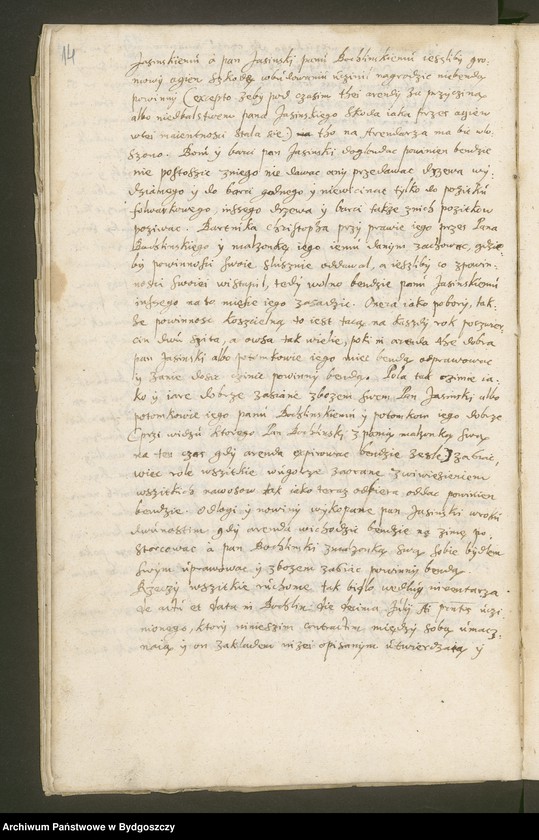 14
Jasinskiemu a pan Jasinski panu Bochlinskiemu ieszliby gro-
mowy ogien szkodę wbudowaniu uczinił nagrodzic niebendą
powinny (excepto zeby pod czasim thei arendy za przycziną
albo niedbalstwem pana Jasinskiego skoda iaka przes ogien
wtei maientnosci stala sie) tho na Arendarza ma bic wlo-
szono. Boru y barci pan Jasinski doglondac powinien bendzie
nie pustosząc zniego nie dawac any przedawac drzewa wy-
dzialnego y do barci godnego y niewicinac tylko do pozitku
folwarkowego, inszego drzewa y barci takze znich pozitkow
poziwac. Bartnika Christopha przy prawie iego przes Pana
Bochlinskiego y malzonkę iego iemu danym zachowac, gdzie-
by powinnosci swoie slusznie oddawal, a ieszliby co zpowin-
nosci swoiei wistąpil, tedy wolno bendzie panu Jasinskiemu
inszego na to mieisce iego zasadzic. Onera iako pobory, tak-
ze powinnosc koscielną to iest tacą na kaszdy rok poczwier
cin dwu szita, a owsa tak wiele, poki arenda thei dobra
pan Jasinski albo potomkowie iego miec bendą odprawowac
y zanie dosic czinic powinny bendą. Pola tak ozimie ia-
ko y iare dobrze zasiane zbozem swem Pan Jasinski albo
potomkowie iego panu Bochlinskiemu y potomkom iego dobrze
(przi widzu ktorego Pan Bochlinski z panią malzonką swą
na ten czas gdy arenda expirowac bendzie zesle) zasiac,
wiec role wszitkie wugorze zaorane zwiwiezieniem
wszitkich nawosow tak iako teras odbiera oddac powinien
bendzie. Odlogi y nowiny wykopane pan Jasinski wroku
dwunastim gdy arenda wichodzic bendzie na zimę po-
storcowac a pan Bochlinski zmalzonką swą sobie bydlem
swym uprawowac y zbozem zasiac powinny bendą.
Rzeczy wszitkie ruchome tak bidlo wedlug inwentarza
de actu et data in Bochlin die decima July Ai prntis uczi-
nionego, ktory ninieiszim contractem między sobą umacz-
niaią y on zakladem nizei opisanym utwierdzaią y